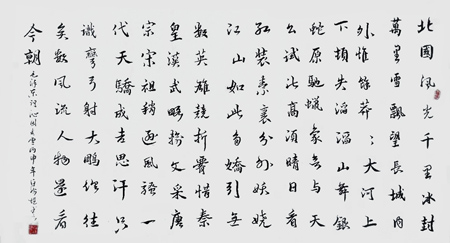 北國風光千里冰封
萬里雪飄望長城內
外惟餘莽々大河上
下頓失滔滔山舞銀
蛇原馳蠟象欲与天
公試比高須晴日看
紅裝素裹分外妖嬈
江山如此多嬌引無
數英雄競折腰惜秦
皇漢武略輸文采唐
宗宋祖稍遜風騷一
代天驕成吉思汗只
識彎弓射大鵰俱往
矣數風流人物還看
今朝
毛澤東詞沁園春雪丙申年